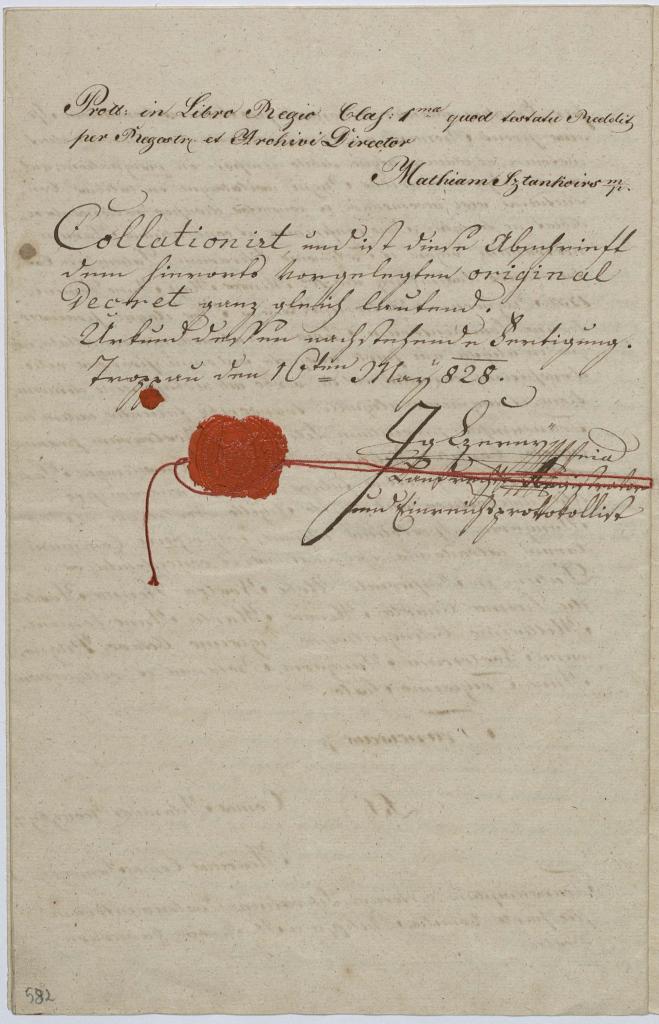 Prott: in Libro Regio Claſ: 1ma quod testatu Reddit
per Regestrę et Archivi Director
Mathiam Iztankoirs mp.
Collationirt, und ist diese Abschrieft
dem hierorts vorgelegten original
Decret ganz gleich lautend.
Urkund dessen nachstehende Fertigung.
Troppau den 16ten May 828.
Ig Czerny
Landrechts Registrator
und Einreichsprotokollist
582